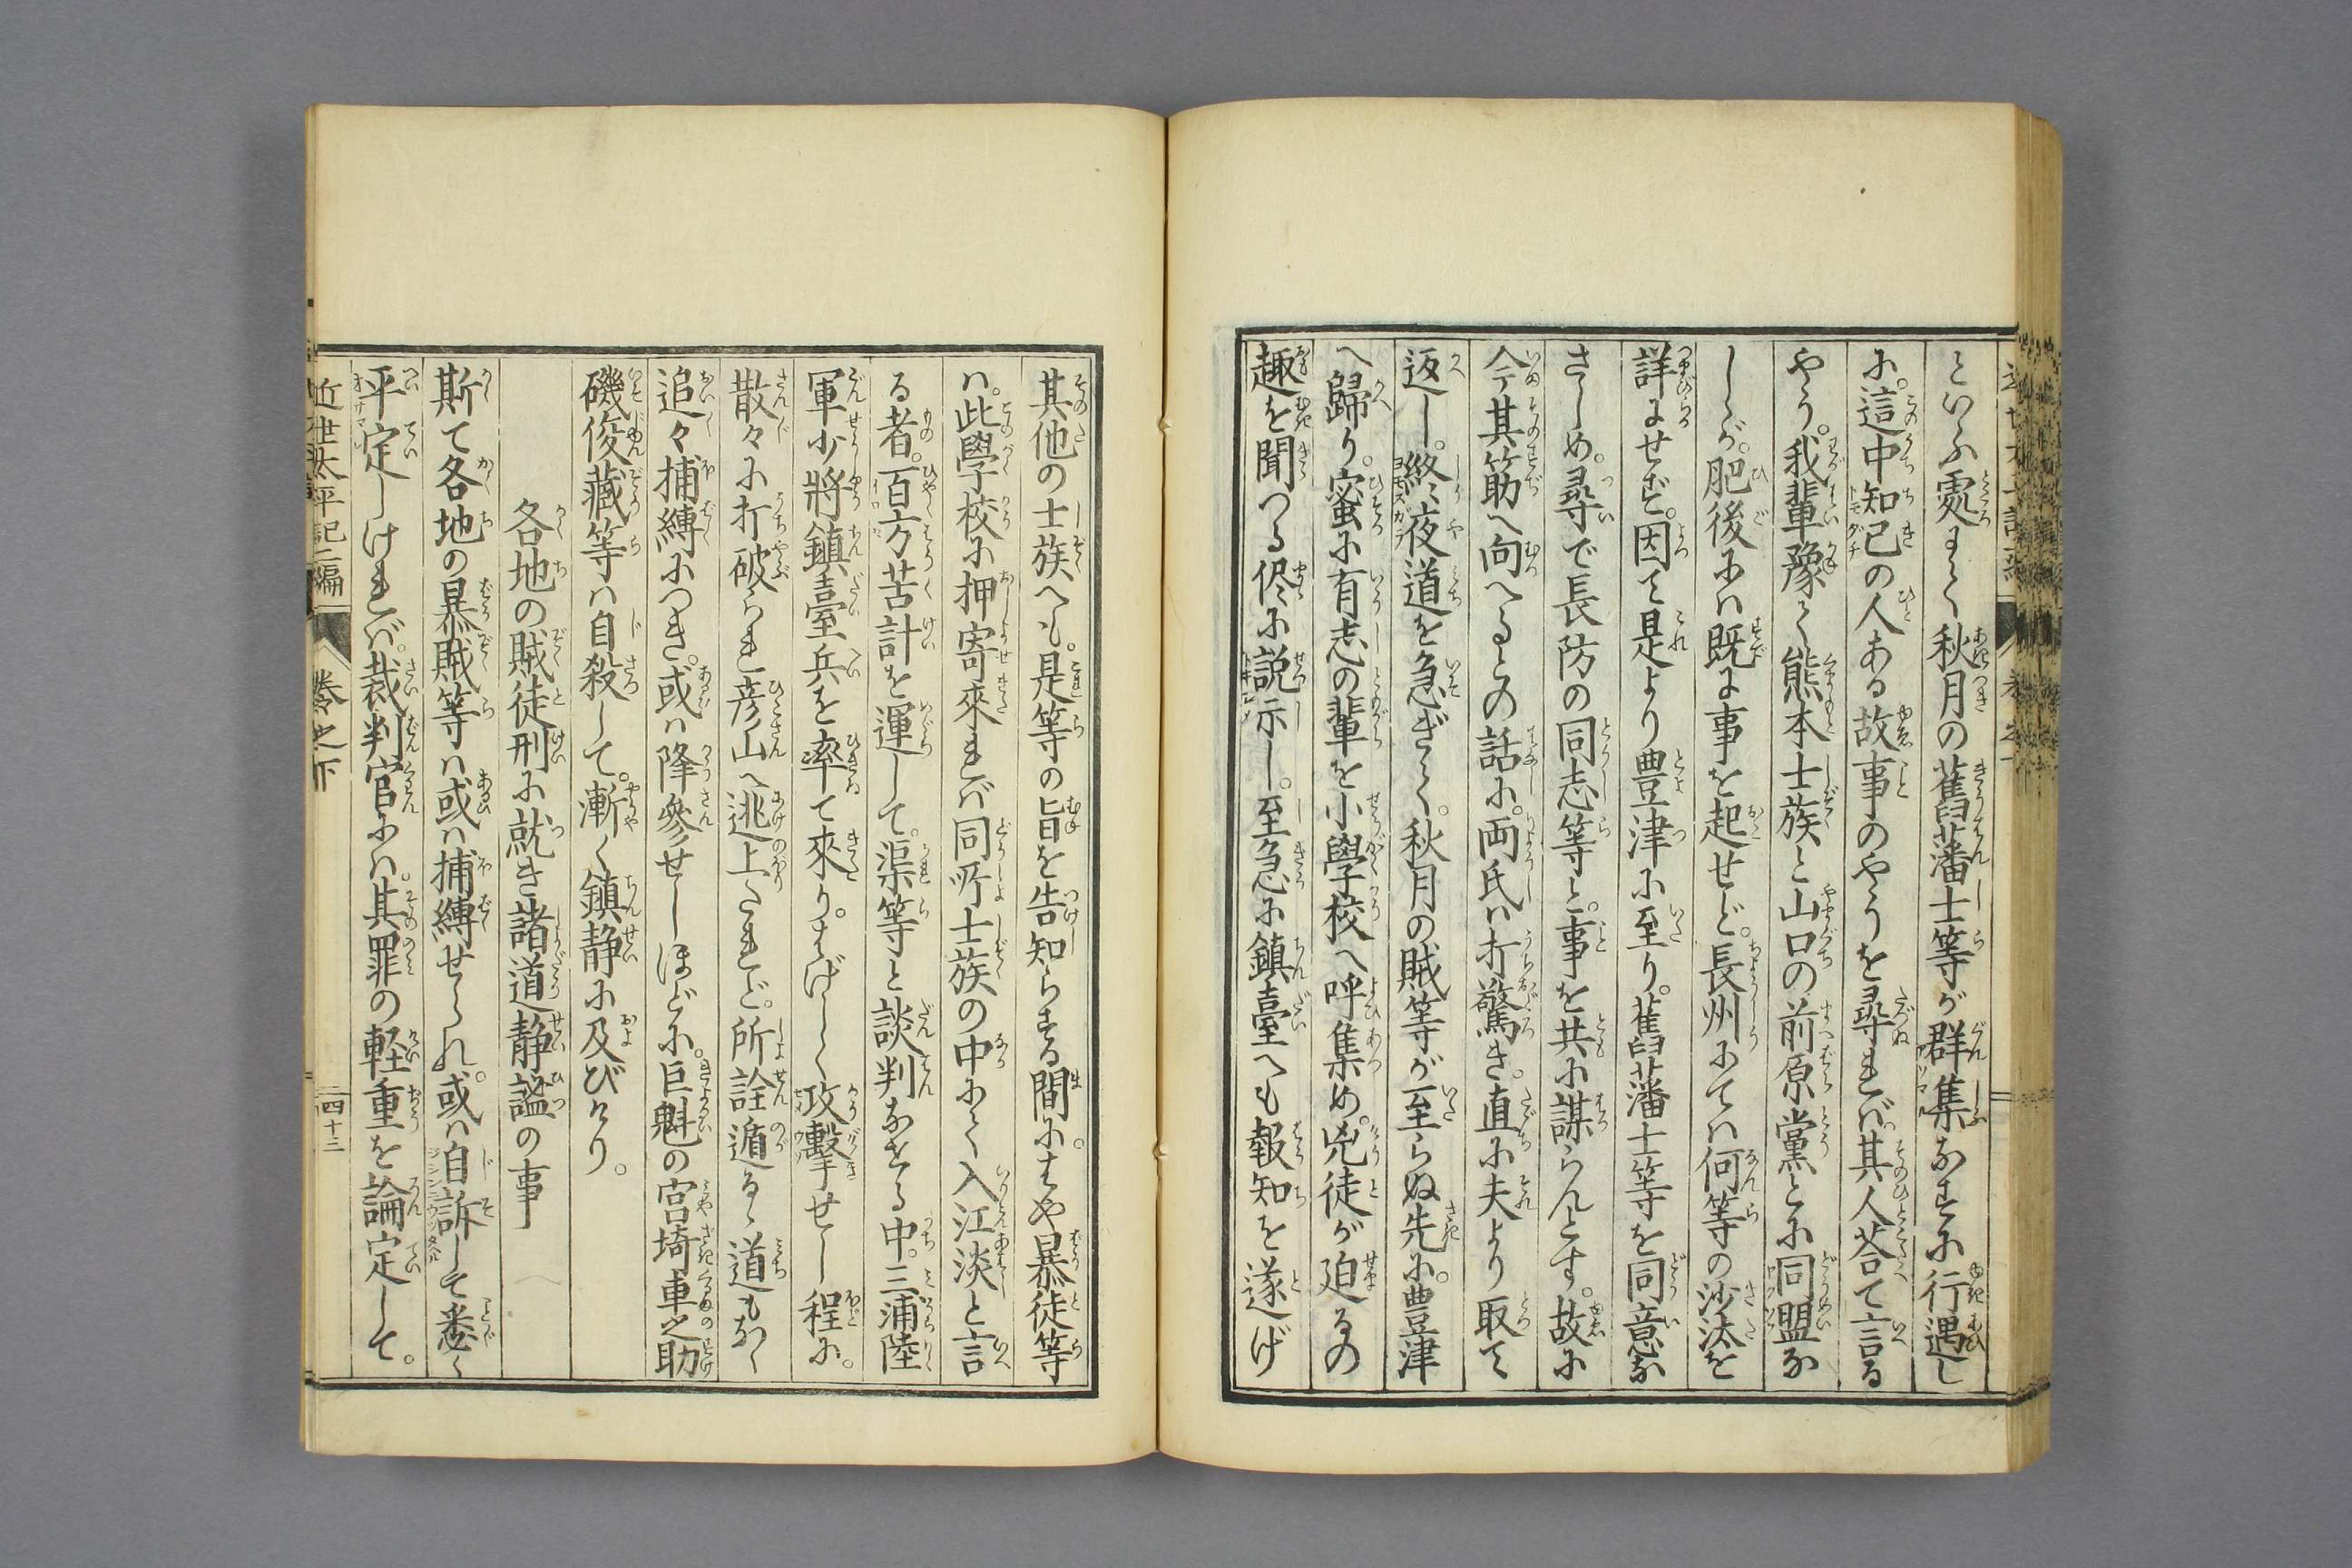 といふ處まで秋月の舊藩士等が群集なすに行遇し
に。這中知己の人ある故事のやうを尋れバ其人荅て言る
やう。我輩豫て熊本士族と山口の前原黨とに同盟な
しゝが。肥後にハ既に事を起せど。長州にてハ何等の沙汰を
詳にせず。因て是より豊津に至り。舊藩士等を同意な
さしめ。尋で長防の同志等と。事を共に謀らんとす。故に
今其筋へ向へるとの話に。両氏ハ打驚き。直に夫より取て
返し。終夜道を急ぎつゝ。秋月の賊等が至らぬ先に。豊津
へ歸り。蜜に有志の輩を小學校へ呼集め。兇徒が廹るの
趣を聞つる侭に説示し。至急に鎮臺へも報知を遂げ
其他の士族へも。是等の旨を告知らする間に。はや暴徒等
ハ。此學校に押寄來れバ同所士族の中にて入江淡と言
る者。百方苦計を運して。渠等と談判なせる中。三浦陸
軍少將鎮臺兵を率て來り。はげしく攻擊せし程に。
散々に打破られ彦山へ逃上たれど。所詮遁るゝ道もなく
追々捕縛につき。或ハ降參せしほどに。巨魁の宮埼車之助
磯俊藏等ハ自殺して。漸く鎮静に及びけり。
各地の賊徒刑に就き諸道静謐の事
斯て各地の暴賊等ハ或ハ捕縛せられ。或ハ自訴して悉く
平定しけれバ。裁判官にハ。其罪の軽重を論定して。
近世太平記二編
巻之下
四十三